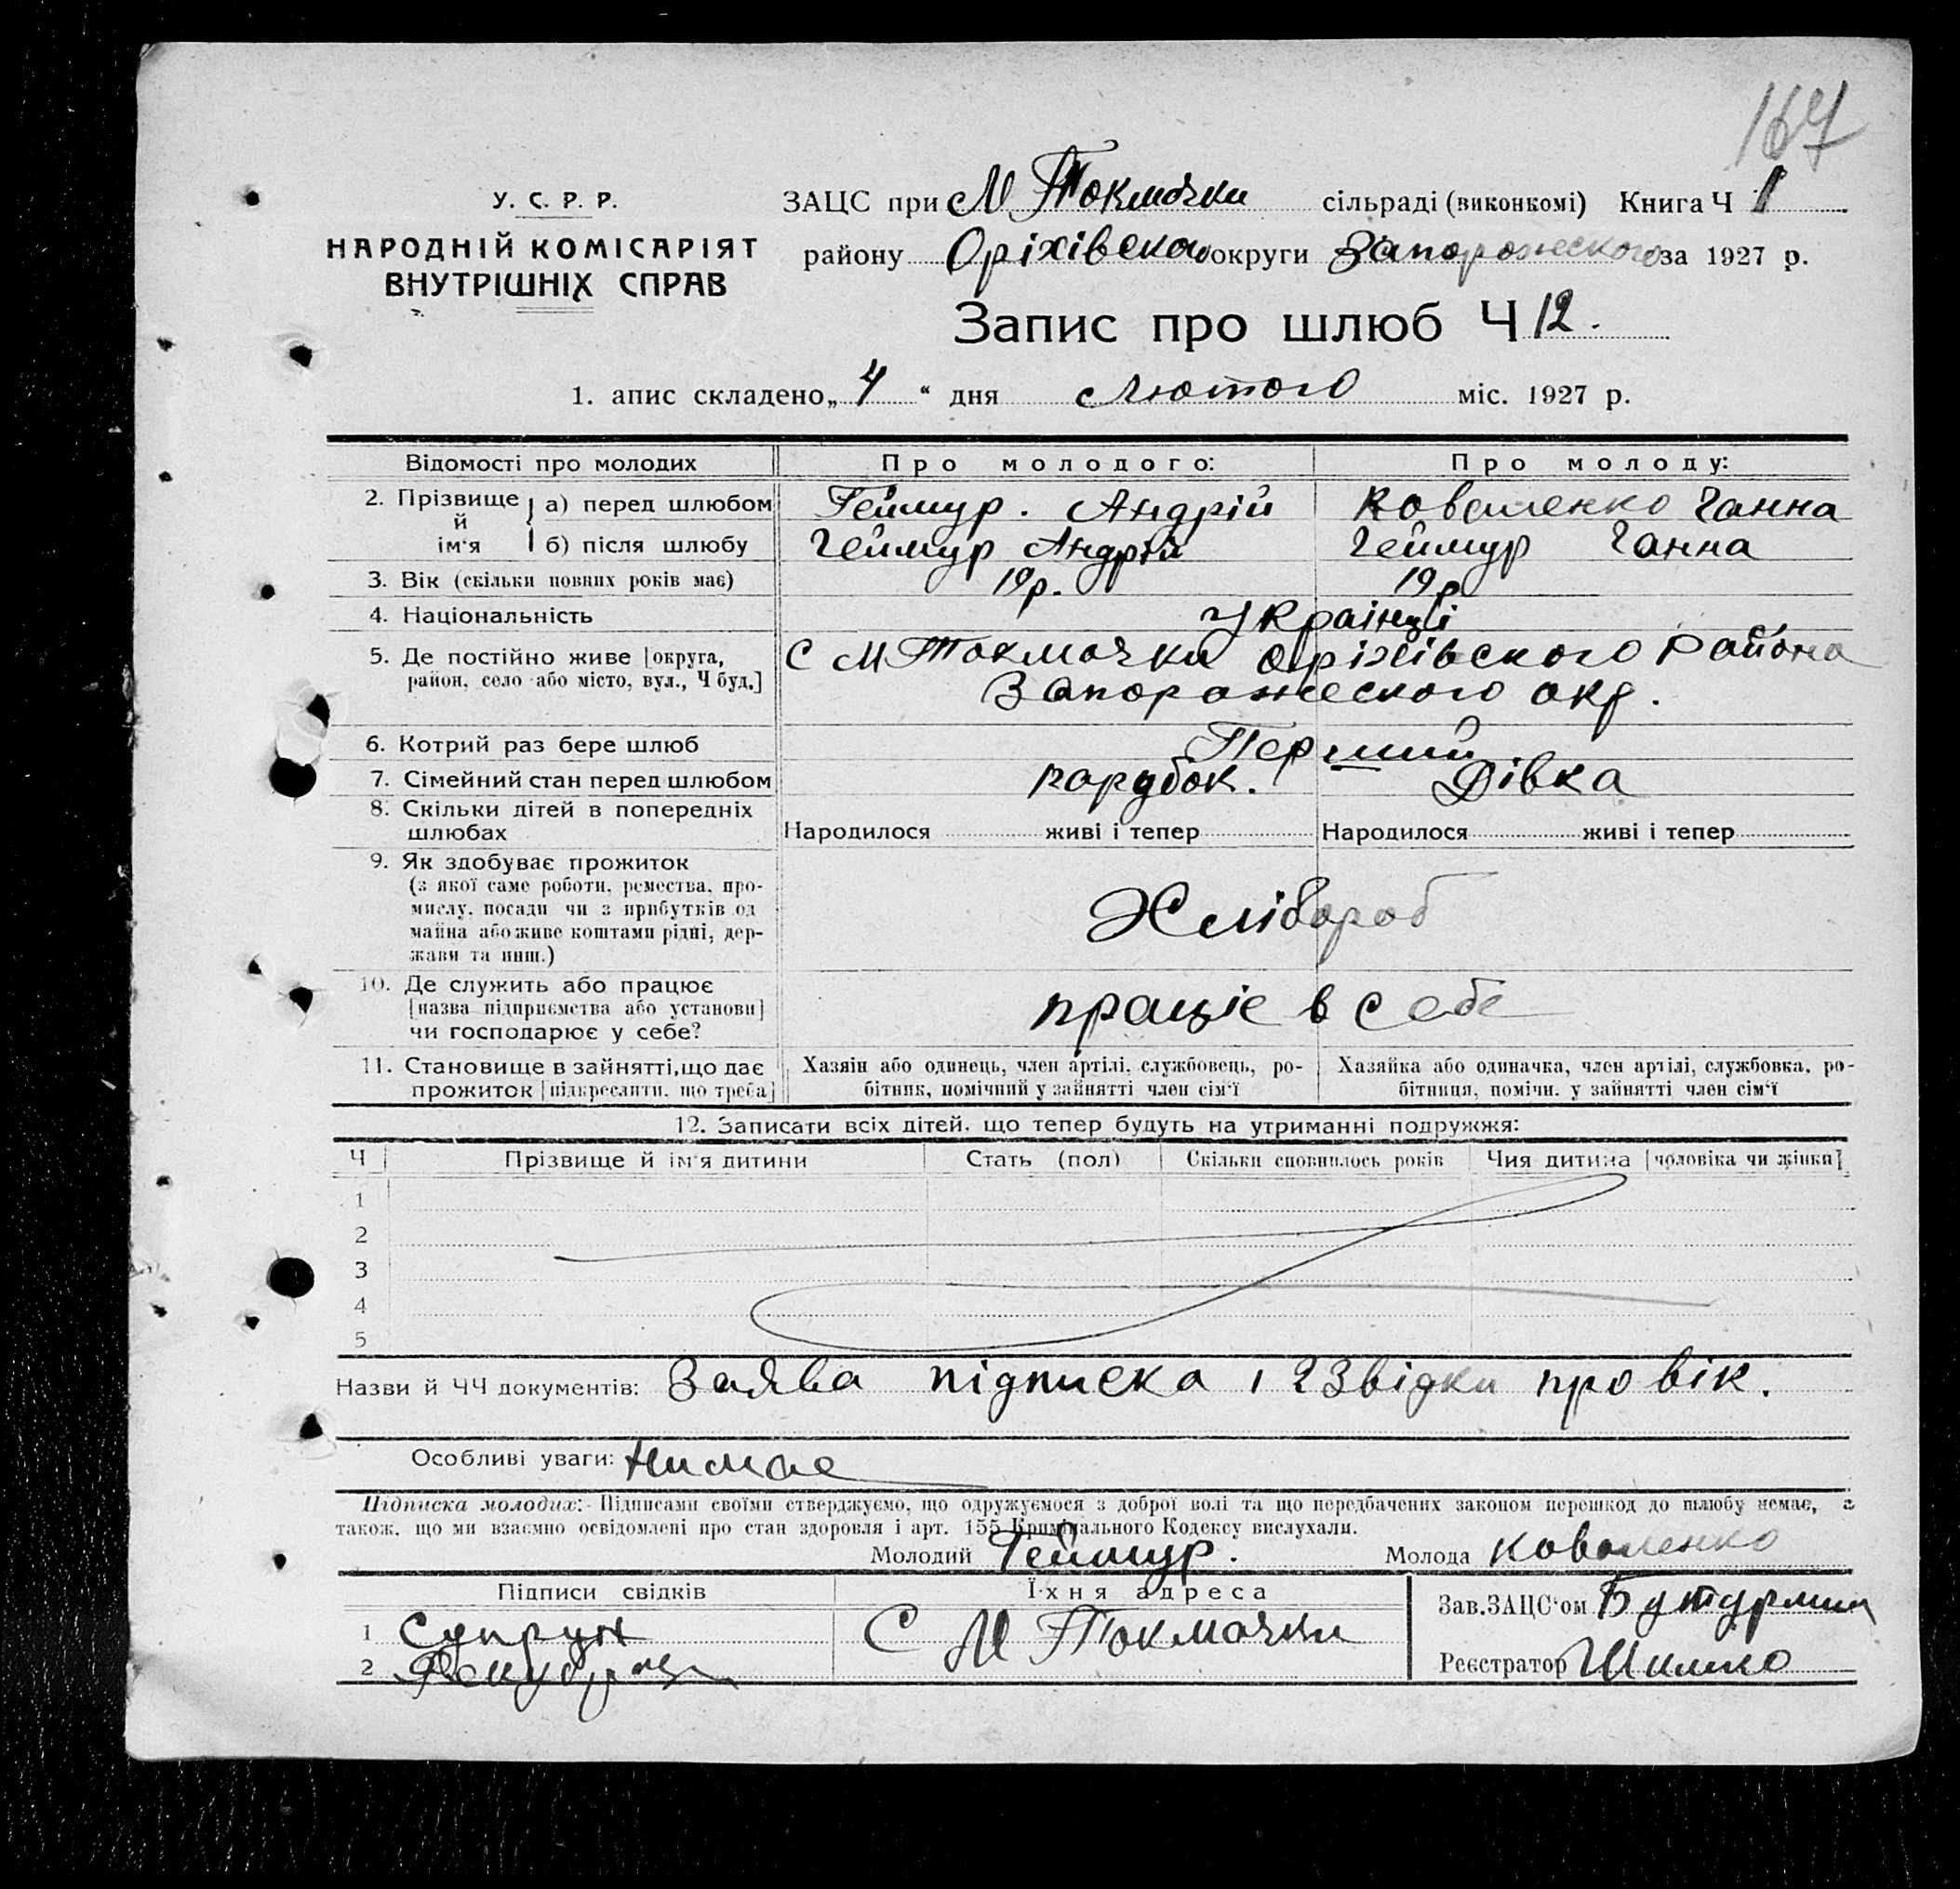 167
У. С. Р. Р.
НАРОДНІЙ КОМІСАРІЯТ
ВНУТРІШНІХ СПРАВ
ЗАЦС при М Токмачки сільраді (виконкомі) Книга Ч 1
району Оріхівского округи Запорожеского за 1927 р.
Запис про шлюб Ч 12.
1. апис складено „ 4 “ дня лютого міс. 1927 р.
Відомості про молодих Про молодого: Про молоду:
2. Прізвище й ім'я а) перед шлюбом Геймур. Андрій Коваленко Ганна
б) після шлюбу Геймур Андрій Геймур Ганна
3. Вік (скільки повних років має) 19р. 19р
4. Національність Українці
5. Де постійно живе [округа, С М Токмачки Оріхівского района
район, село або місто, вул., Ч буд.] Запорожеского окр.
6. Котрий раз бере шлюб Перший
7. Сімейний стан перед шлюбом парубок. Дівка
8. Скільки дітей в попередніх
шлюбах Народилося живі і тепер Народилося живі і тепер
9. Як здобуває прожиток
(з якої саме роботи, ремества, про-
мислу, посади чи з прибутків од
майна або живе коштами рідні, дер-
жави та инш.) Хлібороб
10. Де служить або працює
[назва підприємства або установи] праціє в себе
чи господарює у себе?
11. Становище в зайнятті, що дає Хазяїн або одинець, член артілі, службовець, ро- Хазяйка або одиначка, член артілі, службовка, ро-
прожиток [підкреслити, що треба] бітник, помічний у зайнятті член сім'ї бітниця, помічн. у зайнятті член сім'ї
12. Записати всіх дітей, що тепер будуть на утриманні подружжя:
Ч Прізвище й ім'я дитини Стать (пол) Скільки сповнилось років Чия дитина [чоловіка чи жінки]
1
2
3
4
5
Назви й ЧЧ документів: Заява підписка і 2 Звідки про вік.
Особливі уваги: Нимае
Підписка молодих: Підписами своїми стверджуємо, що одружуємося з доброї волі та що передбачених законом перешкод до шлюбу немає, а
також, що ми взаємно освідомлені про стан здоровля і арт. 155 Кримінального Кодексу вислухали.
Молодий Геймур. Молода Коваленко
Підписи свідків Їхня адреса
Зав. ЗАЦС'ом
1 Супрун С М Токмачки
2
Реєстратор Шишко